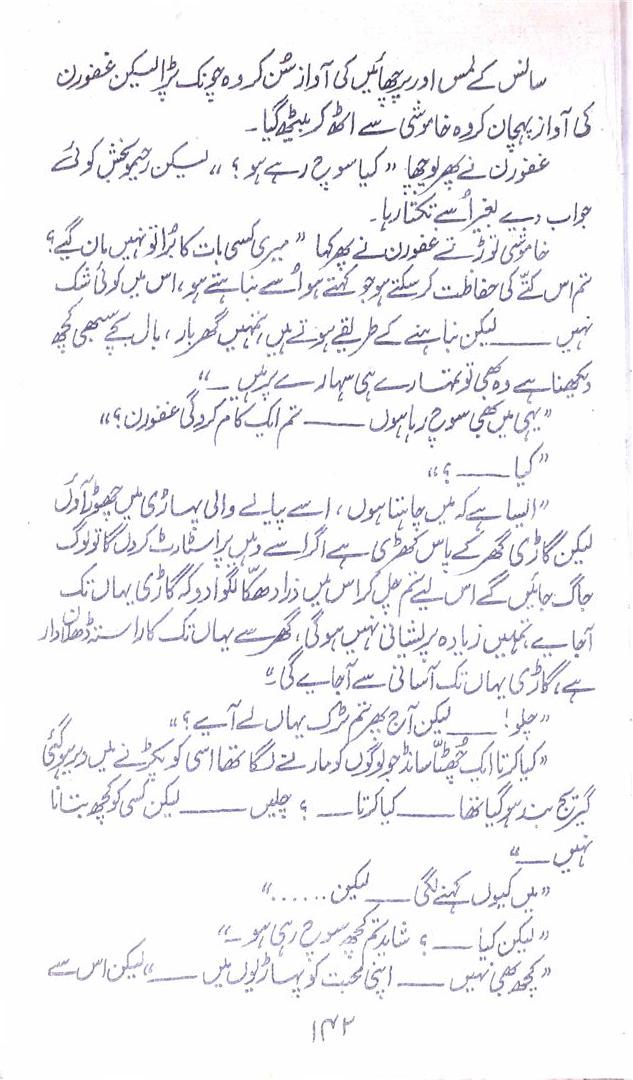 سانس کے لمس اور پرچھائیں کی آواز سُن کر وہ چونک پڑا لیکن غفورن
کی آواز پہچان کر وہ خاموشی سے اٹھ کر بیٹھ گیا۔
غفورن نے پھر پوچھا ”کیا سوچ رہے ہو؟“ لیکن رحیم بخش کوئی
جواب دیے بغیر اُسے تکتا رہا۔
خاموشی توڑنے غفورن نے پھر کہا ”میری کسی بات کا بُرا تو نہیں مان گیے؟
تم اس کتّے کی حفاظت کر سکتے ہو جو کہتے ہو اُسے نباہتے ہو، اس میں کوئی شک
نہیں ــــــ لیکن نباہنے کے طریقے ہوتے ہیں، تمہیں گھر بار، بال بچے سبھی کچھ
دیکھنا ہے وہ بھی تو تمہارے ہی سہارے پر ہیں۔“
”یہی میں بھی سوچ رہا ہوں ــــــ تم ایک کام کرو گی غفورن؟“
”کیا ــــــ؟“
”ایسا ہے کہ میں چاہتا ہوں، اسے پالے والی پہاڑی میں چھوڑ آؤں
لیکن گاڑی گھر کے پاس کھڑی ہے اگر اسے وہیں پر اسٹارٹ کردں گا تو لوگ
جاگ جائیں گے اس لیے تم چل کر اس میں ذرا دھکّا لگوا دو کہ گاڑی یہاں تک
آجایے، تمہیں زیادہ پریشانی نہیں ہوگی، گھر سے یہاں تک کا راستہ ڈھلان دار
ہے، گاڑی یہاں تک آسانی سے آجایے گی۔“
”چلو! ــــــ لیکن آج پھر تم ٹرک یہاں لے آیے؟“
”کیا کرتا ایک چُھٹّا سانڈ جو لوگوں کو مارنے لگا تھا اسی کو پکڑنے میں دیر ہو گئی
گیریج بند ہو گیا تھا ــــــ کیا کرتا ــــــ؟ چلیں ــــــ لیکن کسی کو کچھ بتانا
نہیں ــــــ“
”میں کیوں کہنے لگی ــــــ لیکن......“
”لیکن کیا ــــــ؟ شاید تم کچھ سوچ رہی ہو۔“
”کچھ بھی نہیں ــــــ اپنی محبت کو پہاڑیوں میں ــــــ“ لیکن اس سے
۱۴۲